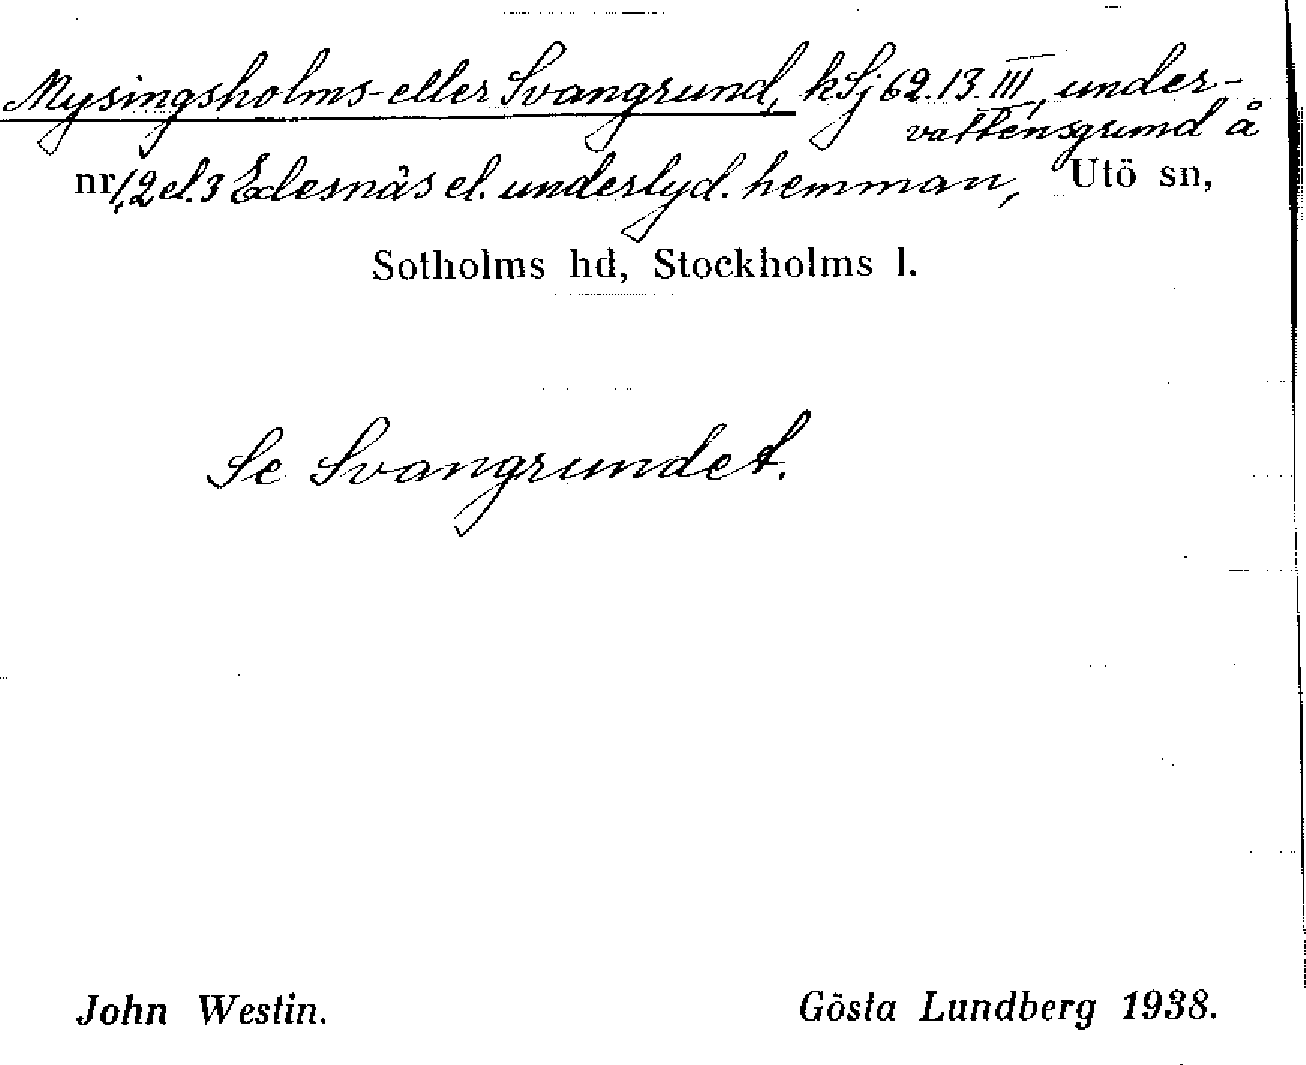 Mysingsholms- eller Svangrund, kSj 62.13.III, under-
vattensgrund å
nr 1,2 el. 3 Edesnäs el. underlyd. hemman, Utö sn,
Sotholms hd, Stockholms l.
Se Svangrundet.
John Westin.
Gösta Lundberg 1938.